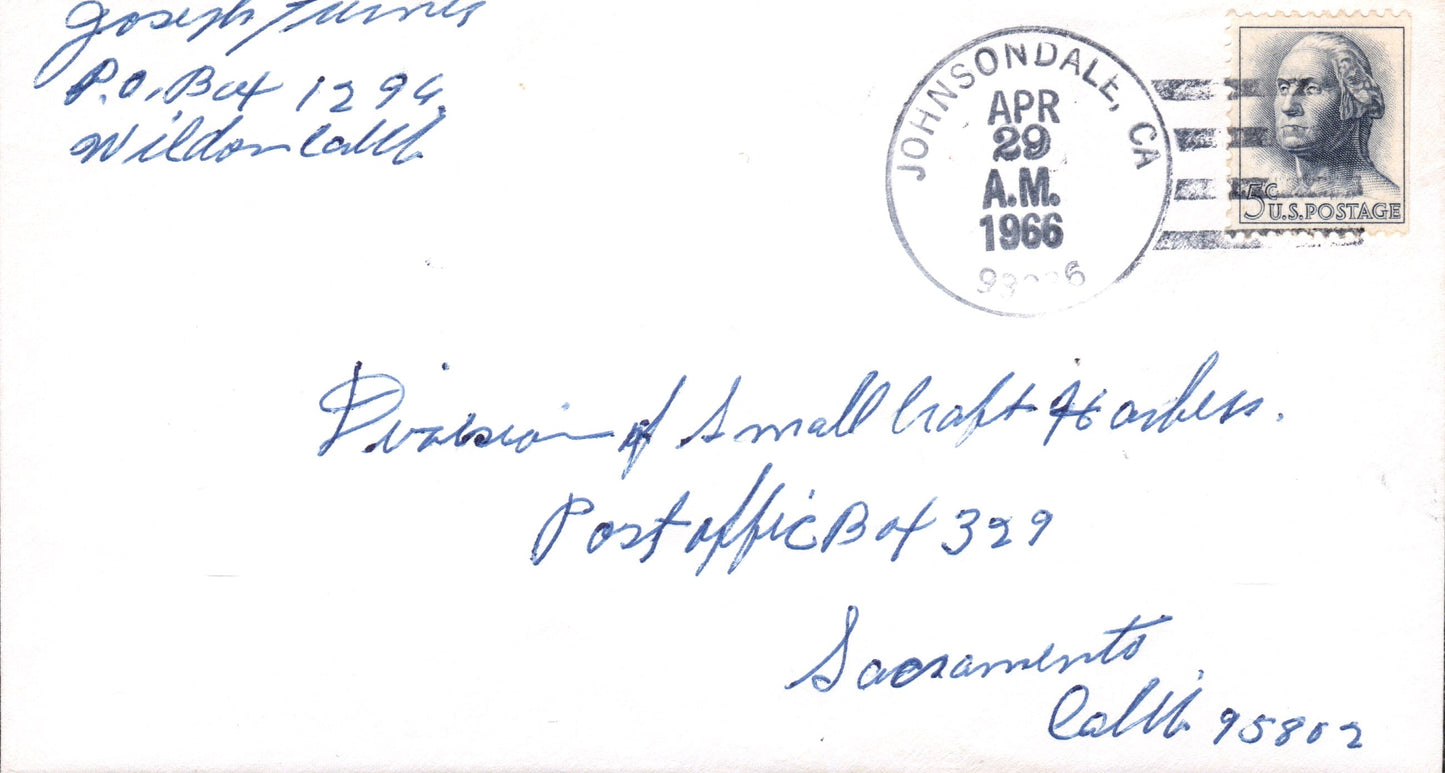 Joseph Turner
P.O. Box 1294
Wildon Calif.
JOHNSONDALE, CA
APR
29
A.M.
1966
5c U.S. POSTAGE
Division of Small Craft Harbers.
Post offic Box 329
Sacramento
Calif. 95802